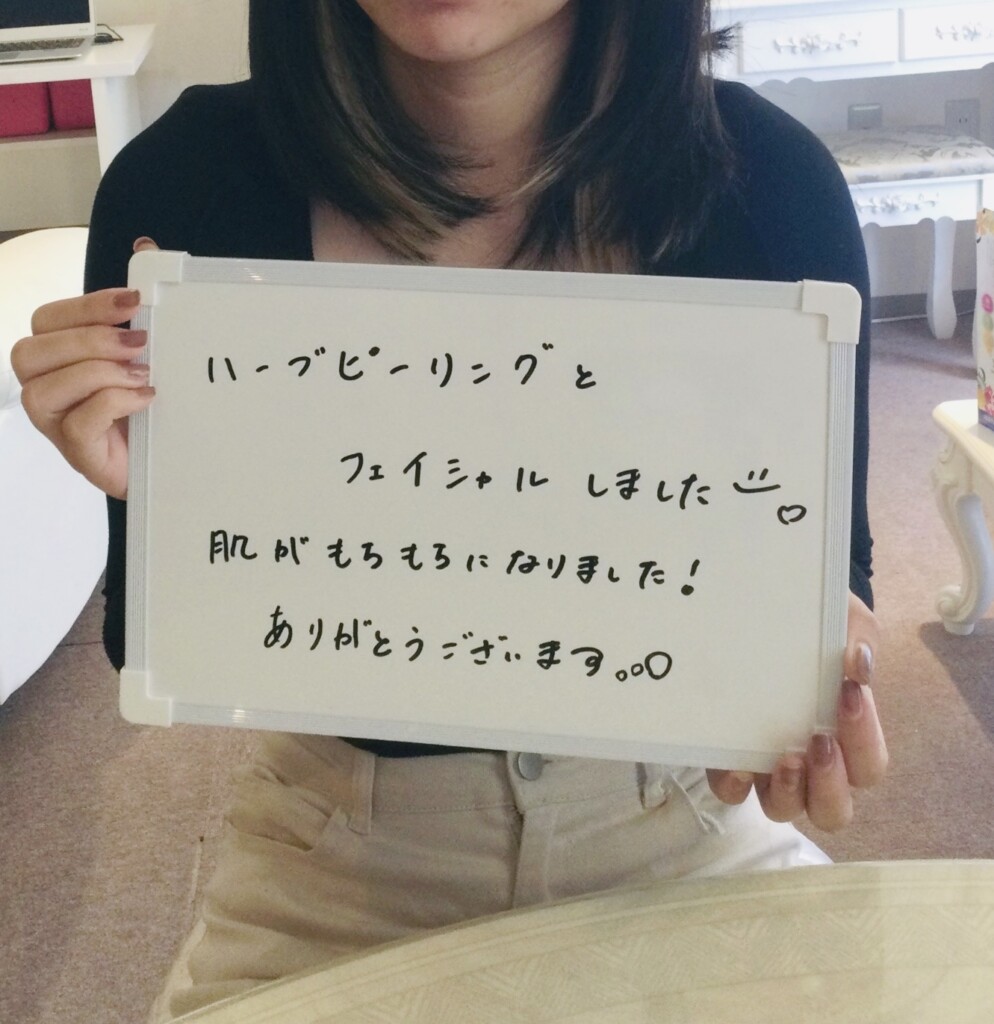 ハーブピーリングと
フェイシャルしました
肌がもちもちになりました!
ありがとうございます。。。